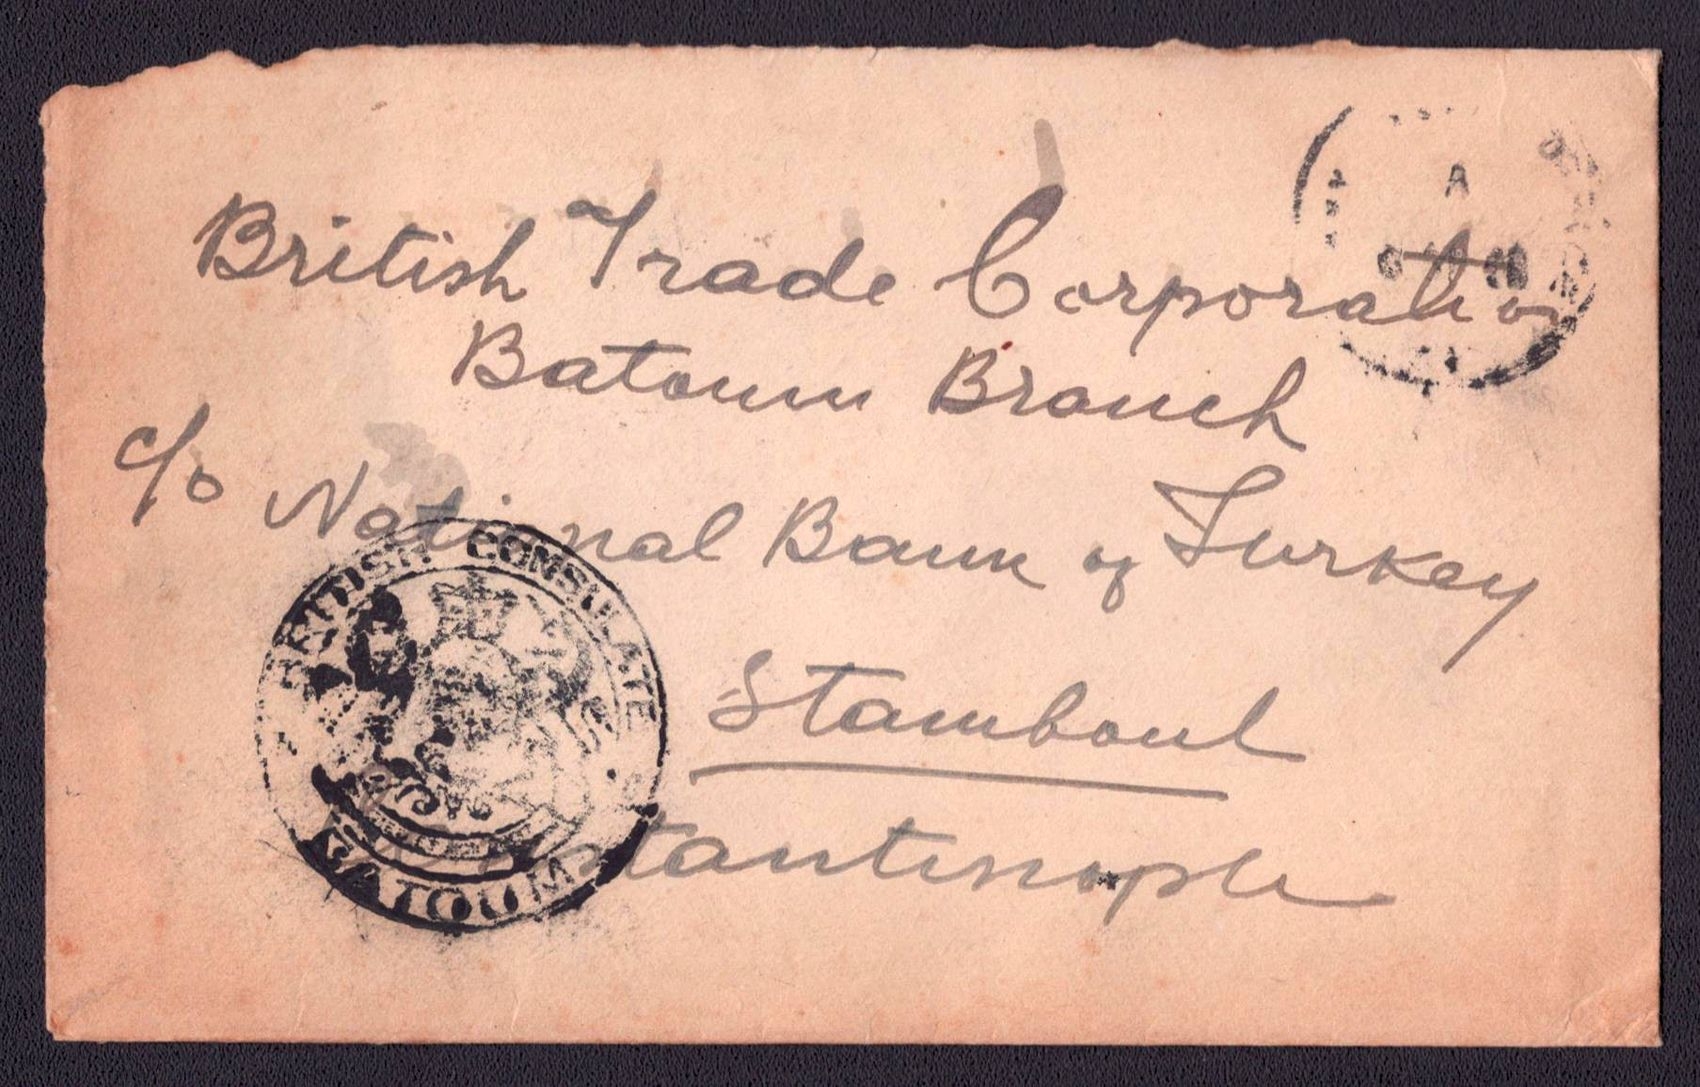 A
British Trade Corporation
Batoum Branch
c/o National Bank of Turkey
Stamboul
Constantinople
BRITISH CONSULATE
BATOUM